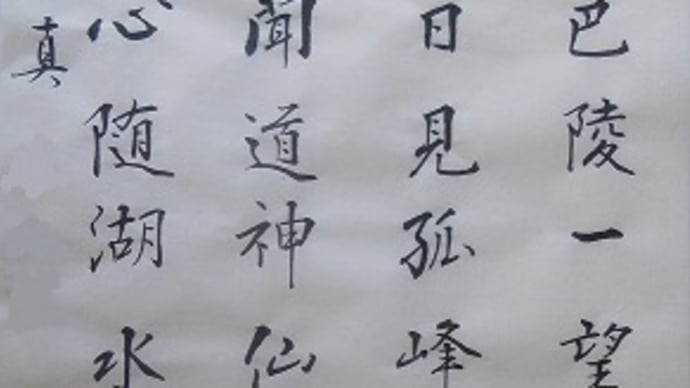 巴陵一望
日見孤峰
聞道神仙
心随湖水
真